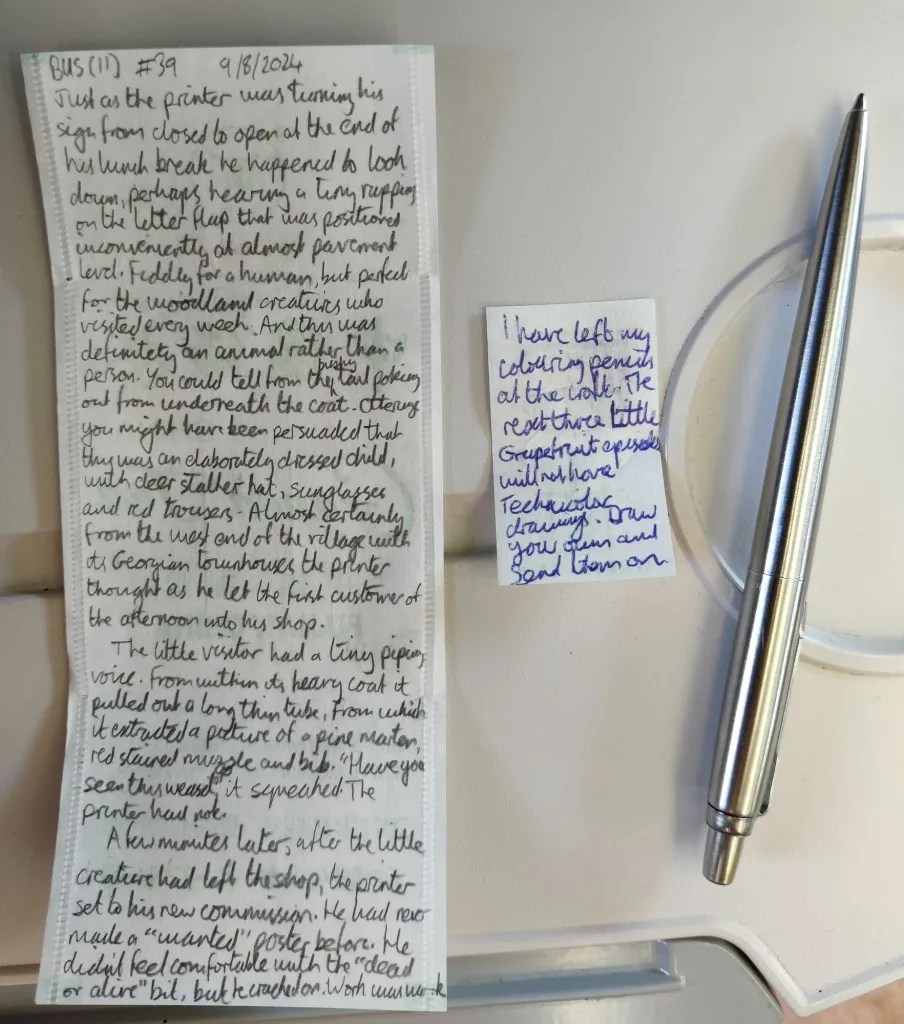 BUS (11) #39 9/8/2024
Just as the printer was turning his
sign from closed to open at the end of
his lunch break he happened to look
down, perhaps hearing a tiny rapping
on the letter flap that was positioned
inconveniently at almost pavement
level. Fiddly for a human, but perfect
for the woodland creatures who
visited every week. And this was
definitely an animal rather than a
person. You could tell from the bushy tail poking
out from underneath the coat.
you might have been persuaded that
this was an elaborately dressed child,
with deer stalker hat, sunglasses
and red trousers. Almost certainly
from the west end of the village with
its Georgian townhouses the printer
thought as he let the first customer of
the afternoon into his shop.
The little visitor had a tiny piping
voice. From within its heavy coat it
pulled out a long thin tube, from which
it extracted a picture of a pine marten,
red stained muzzle and bib. "Have you
seen this weasel" it squeaked. The
printer had not.
A few minutes later, after the little
creature had left the shop, the printer
set to his new commission. He had never
made a "wanted" poster before. He
didn't feel comfortable with the "dead
or alive" bit, but he cracked on. Work was work
I have left my
colouring pencils
at the croft. The
next three little
Grapefruit episodes
will not have
Technicolor
drawings. Draw
your own and
Send them on